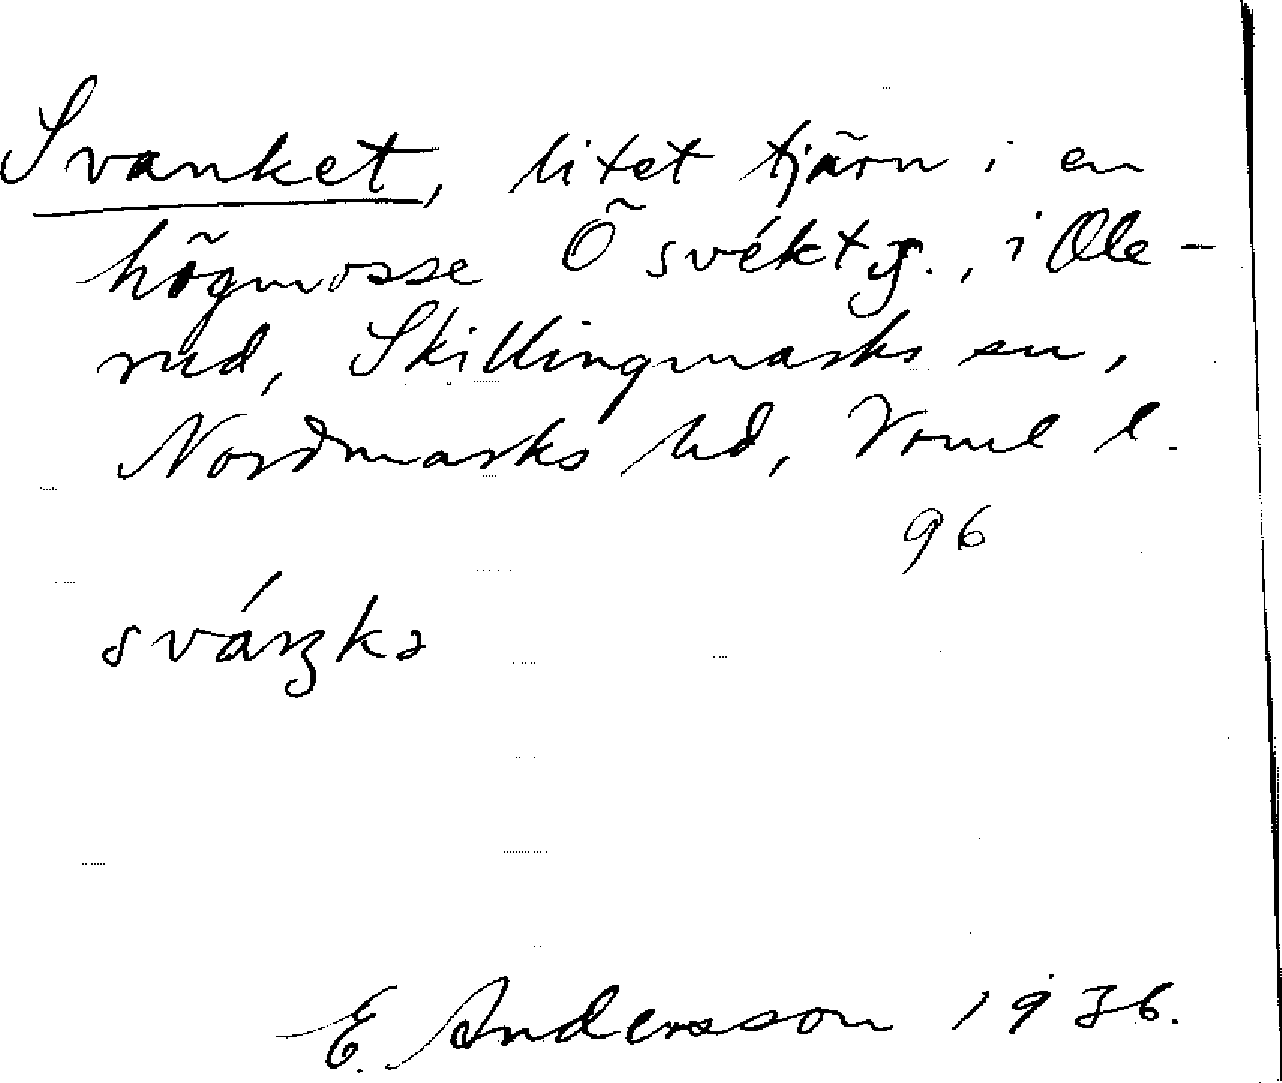 Svanket, litet tjärn i en
högmosse Ö svéktj., i Ole-
rud, Skillingmarks sn,
Nordmarks hd, Vrml l.
96
sváŋkə
E. Andersson 1936.